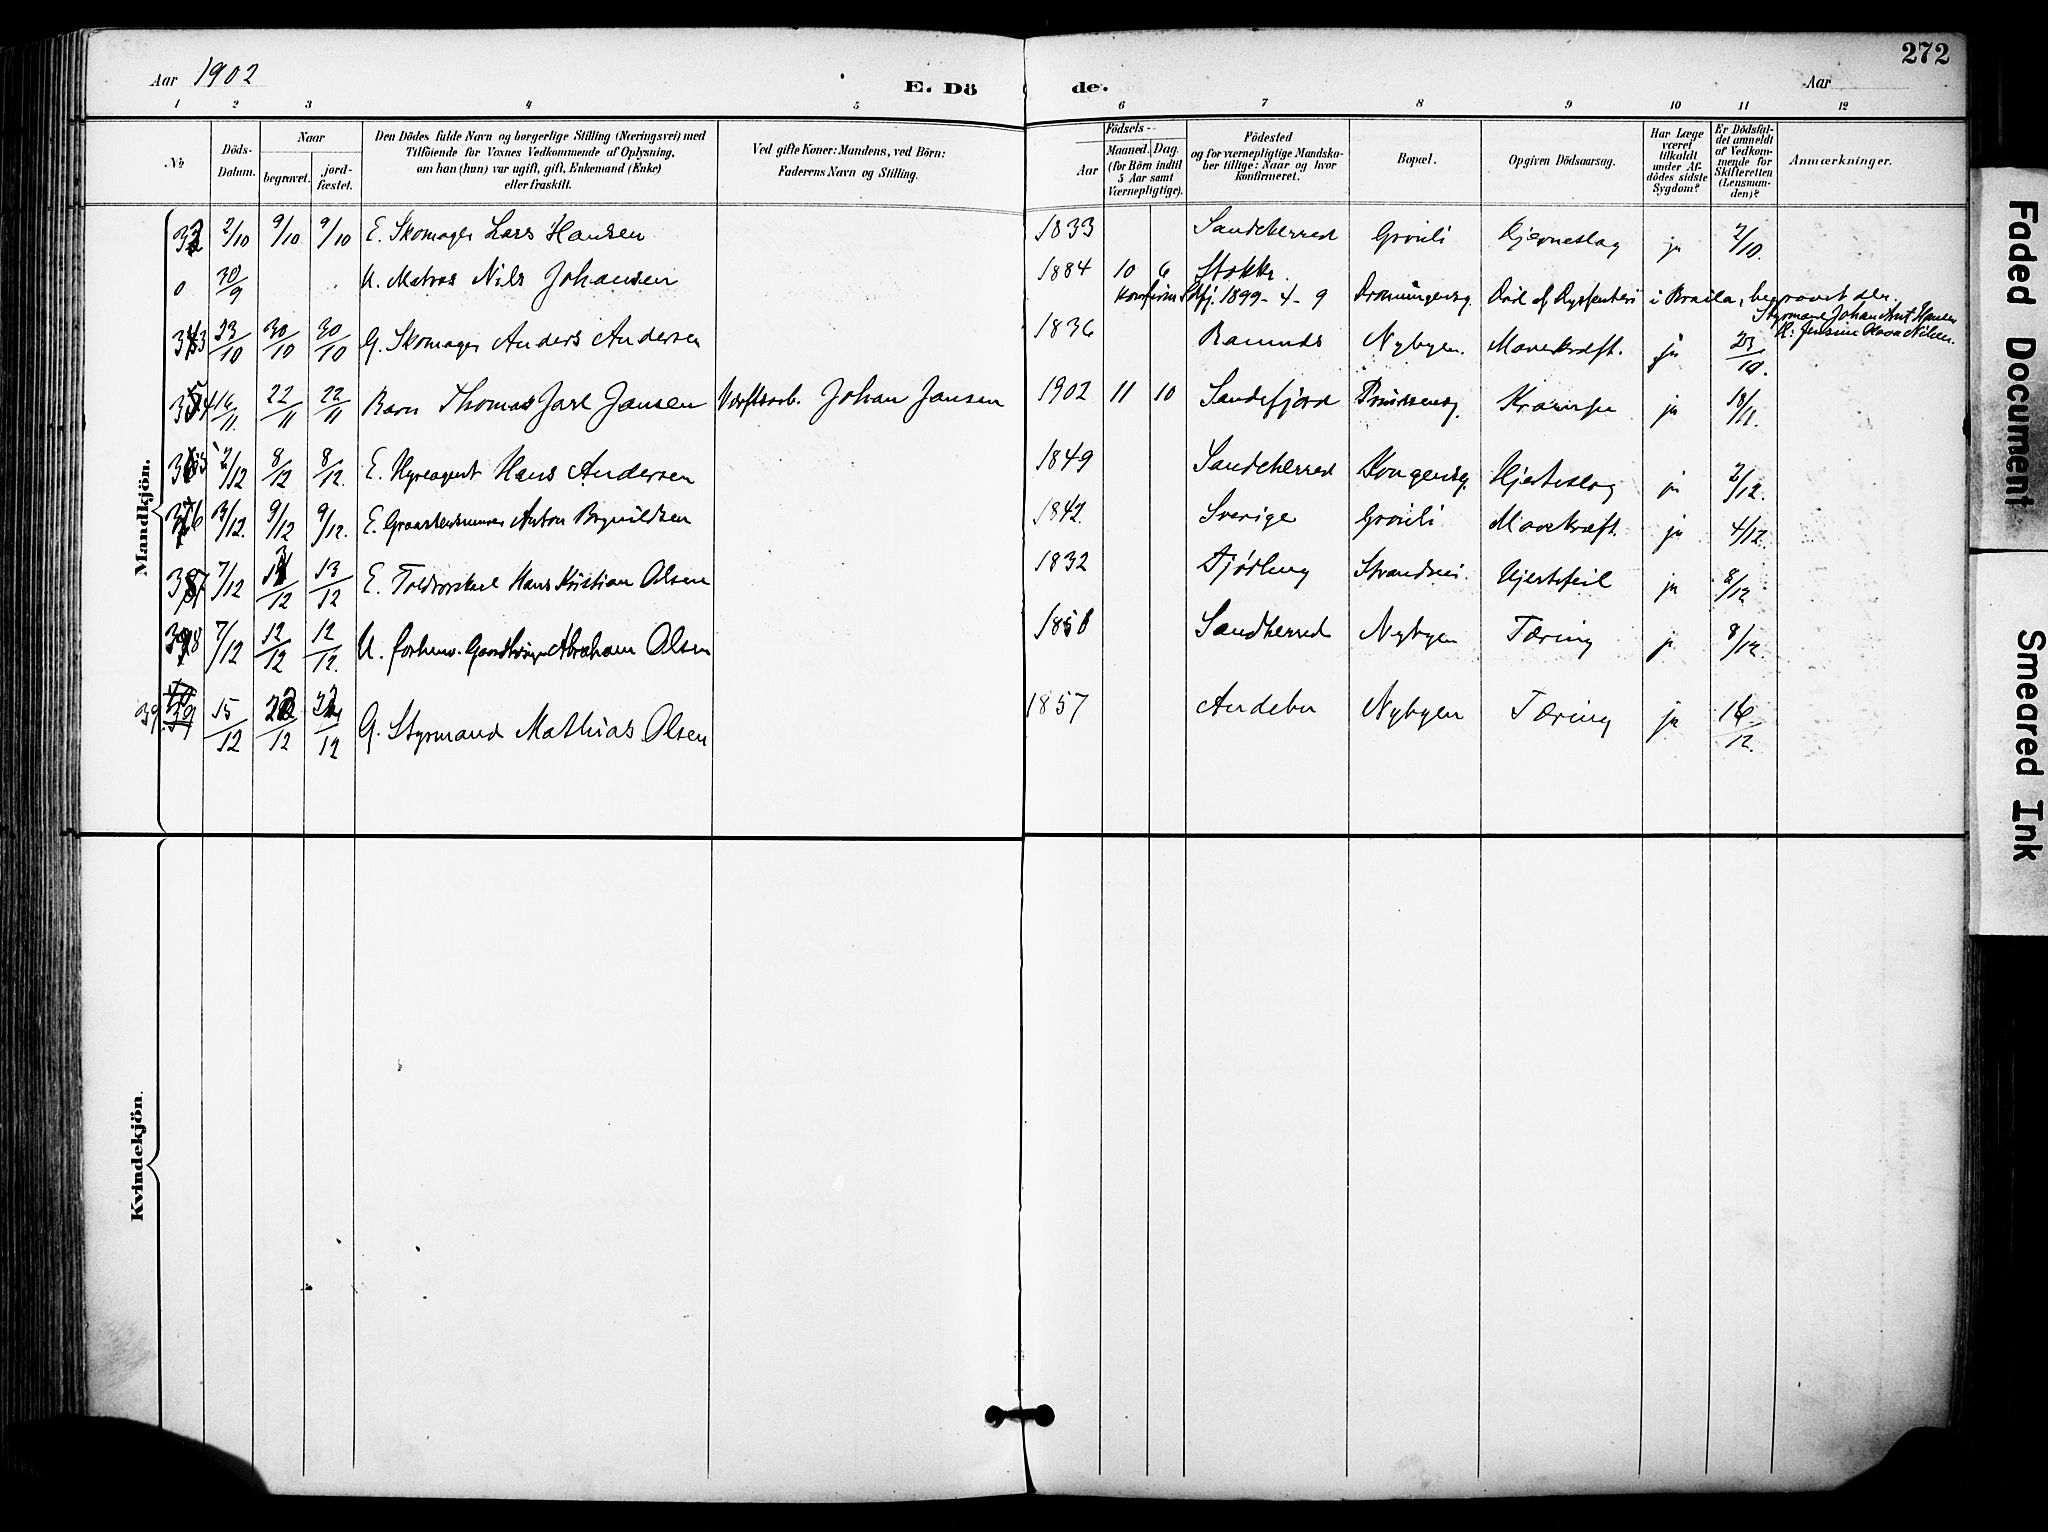 272
Aar 1902 E. Dö de. Aar
1 2 3 4 5 6 7 8 9 10 11 12
No
Döds-Datum.
Naar
begravet.
jord-fæstet.
Den Dödes fulde Navn og borgerlige Stilling (Næringsvei) med
Tilföiende for Voxnes Vedkommende af Oplysning,
om han (hun) var ugift, gift, Enkemand (Enke)
eller fraskilt.
Ved gifte Koner: Mandens, ved Börn:
Faderens Navn og Stilling.
Födsels-
Aar
Maaned. Dag.
(for Börn indtil
5 Aar samt
Værnepligtige).
Födested
og for værnepligtige Mandska-
ber tillige: Naar og hvor
konfirmeret.
Bopæl.
Opgiven Dödsaarsag.
Har Læge
været
tilkaldt
under Af-
dödes sidste
Sygdom?
Er Dödsfal-
det anmeldt
af Vedkom-
mende for
Skifteretten
(Lensman-
den)?
Anmærkninger.
Mandkjön.
32 2/10 9/10 9/10 E. Skomager Lars Hansen 1833 Sandeherred Grönli Hjerneslag ja 2/10
0 30/9 U. Matros Nils Johansen 1884 10 6 Stokke.
Konfirm. Sdfj. 1899-4-9 Dronningensg. Död af Dysenteri i Braila, begravet der.
Styrmand Johan Hansen
33 23/10 30/10 30/10 G. Skomager Anders Andersen 1836 Ramnes Nybyen. Mavekræft. ja 23/10.
34 16/11. 22/11 22/11 Barn Thomas Jarl Jansen Værftsarb. Johan Jansen 1902 11 10 Sandefjord Prinsensg. Krampe ja 18/11.
35 2/12 8/12 8/12. E. Hyreagent Hans Andersen 1849 Sandeherred Kongensg. Hjerteslag ja 2/12.
36 3/12. 9/12 9/12. E. Anton Brynildsen 1842. Sverige Grönli Mavekræft. ja 4/12.
37 7/12 13/12 13/12 E. Hans Kristian Olsen 1832 Tjölling Strandvei. Hjertefeil ja 8/12
38 7/12 12/12 12/12. U. forhenv. Abraham Olsen Sandherred Nybyen Tæring ja 8/12.
39. 15/12 22/12 22/12 G. Styrmand Mathias Olsen 1857 Andebu Nybyen Tæring ja 16/12.
Kvindekjön.
Faded Document
Smeared Ink